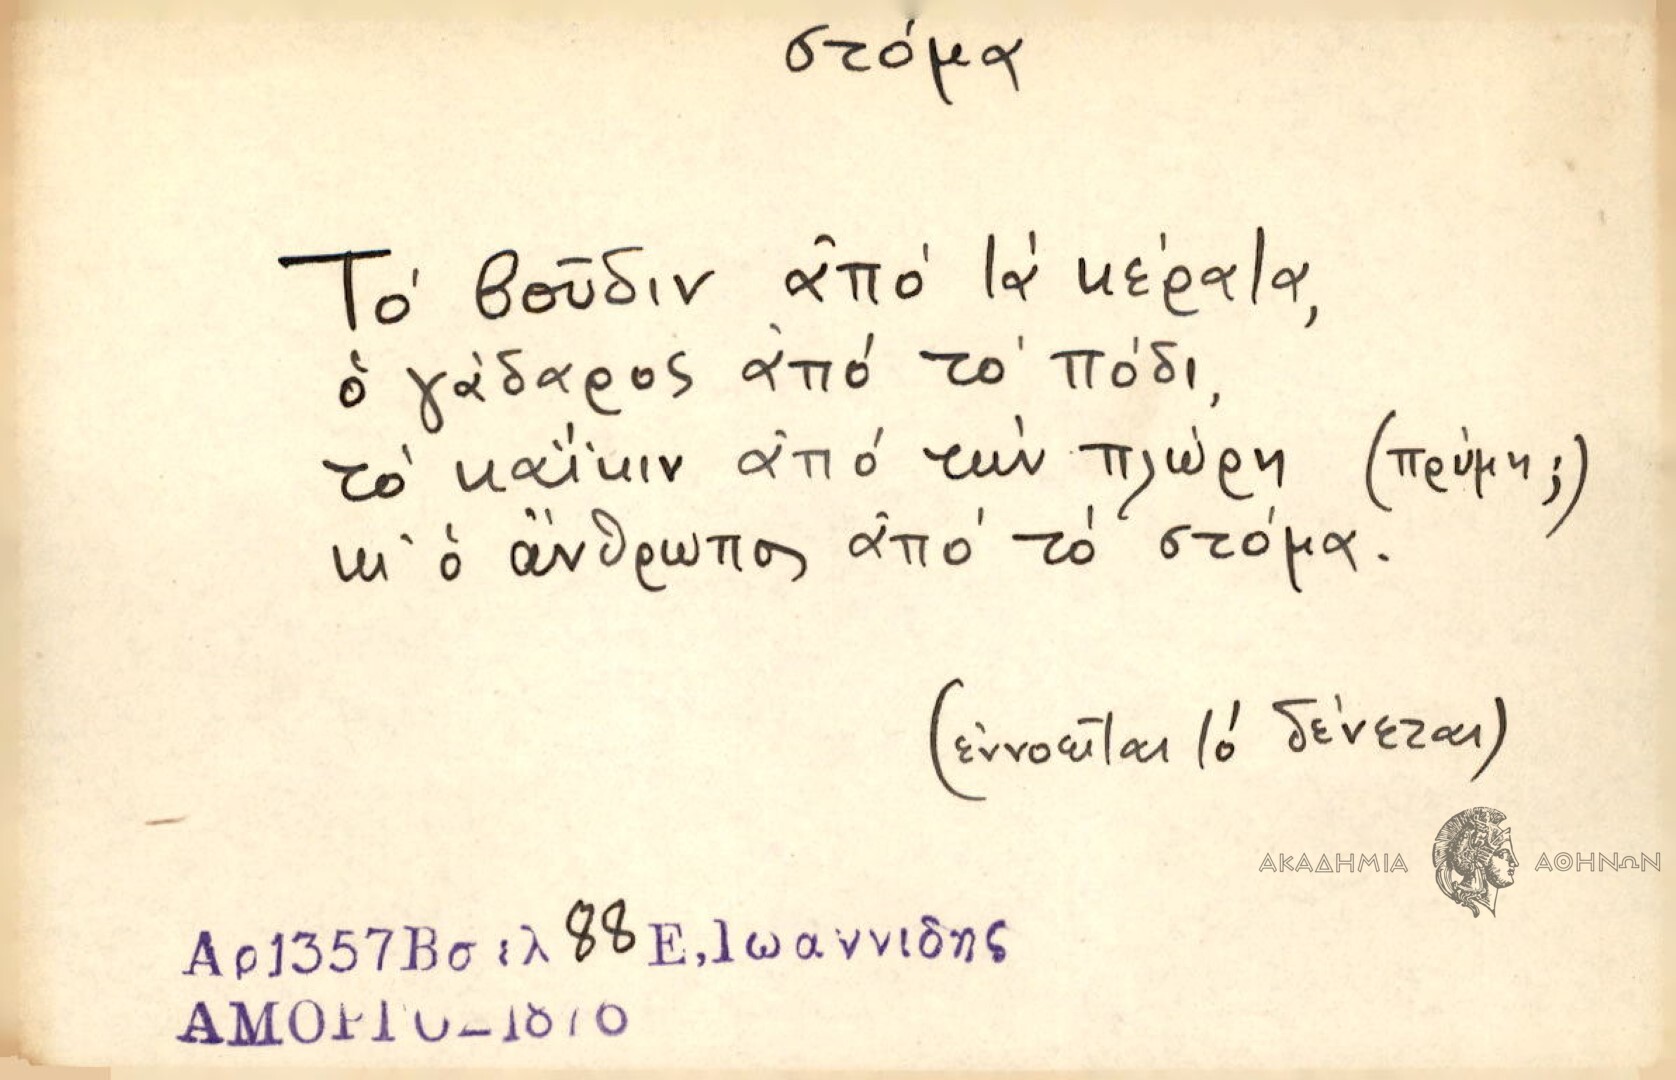 στόμα
Τό βοῦδιν ἀπό τά κέρατα,
ὁ γάδαρος ἀπό τό πόδι,
τό καΐκιν ἀπό τήν πλώρη (πρύμη;)
κι ὁ ἄνθρωπος ἀπό τό στόμα.
(ἐννοεῖται τό δένεται)
ΑΚΑΔΗΜΙΑ ΑΘΗΝΩΝ
Αρ1357Βσελ 88 Ε,Ιωαννιδης